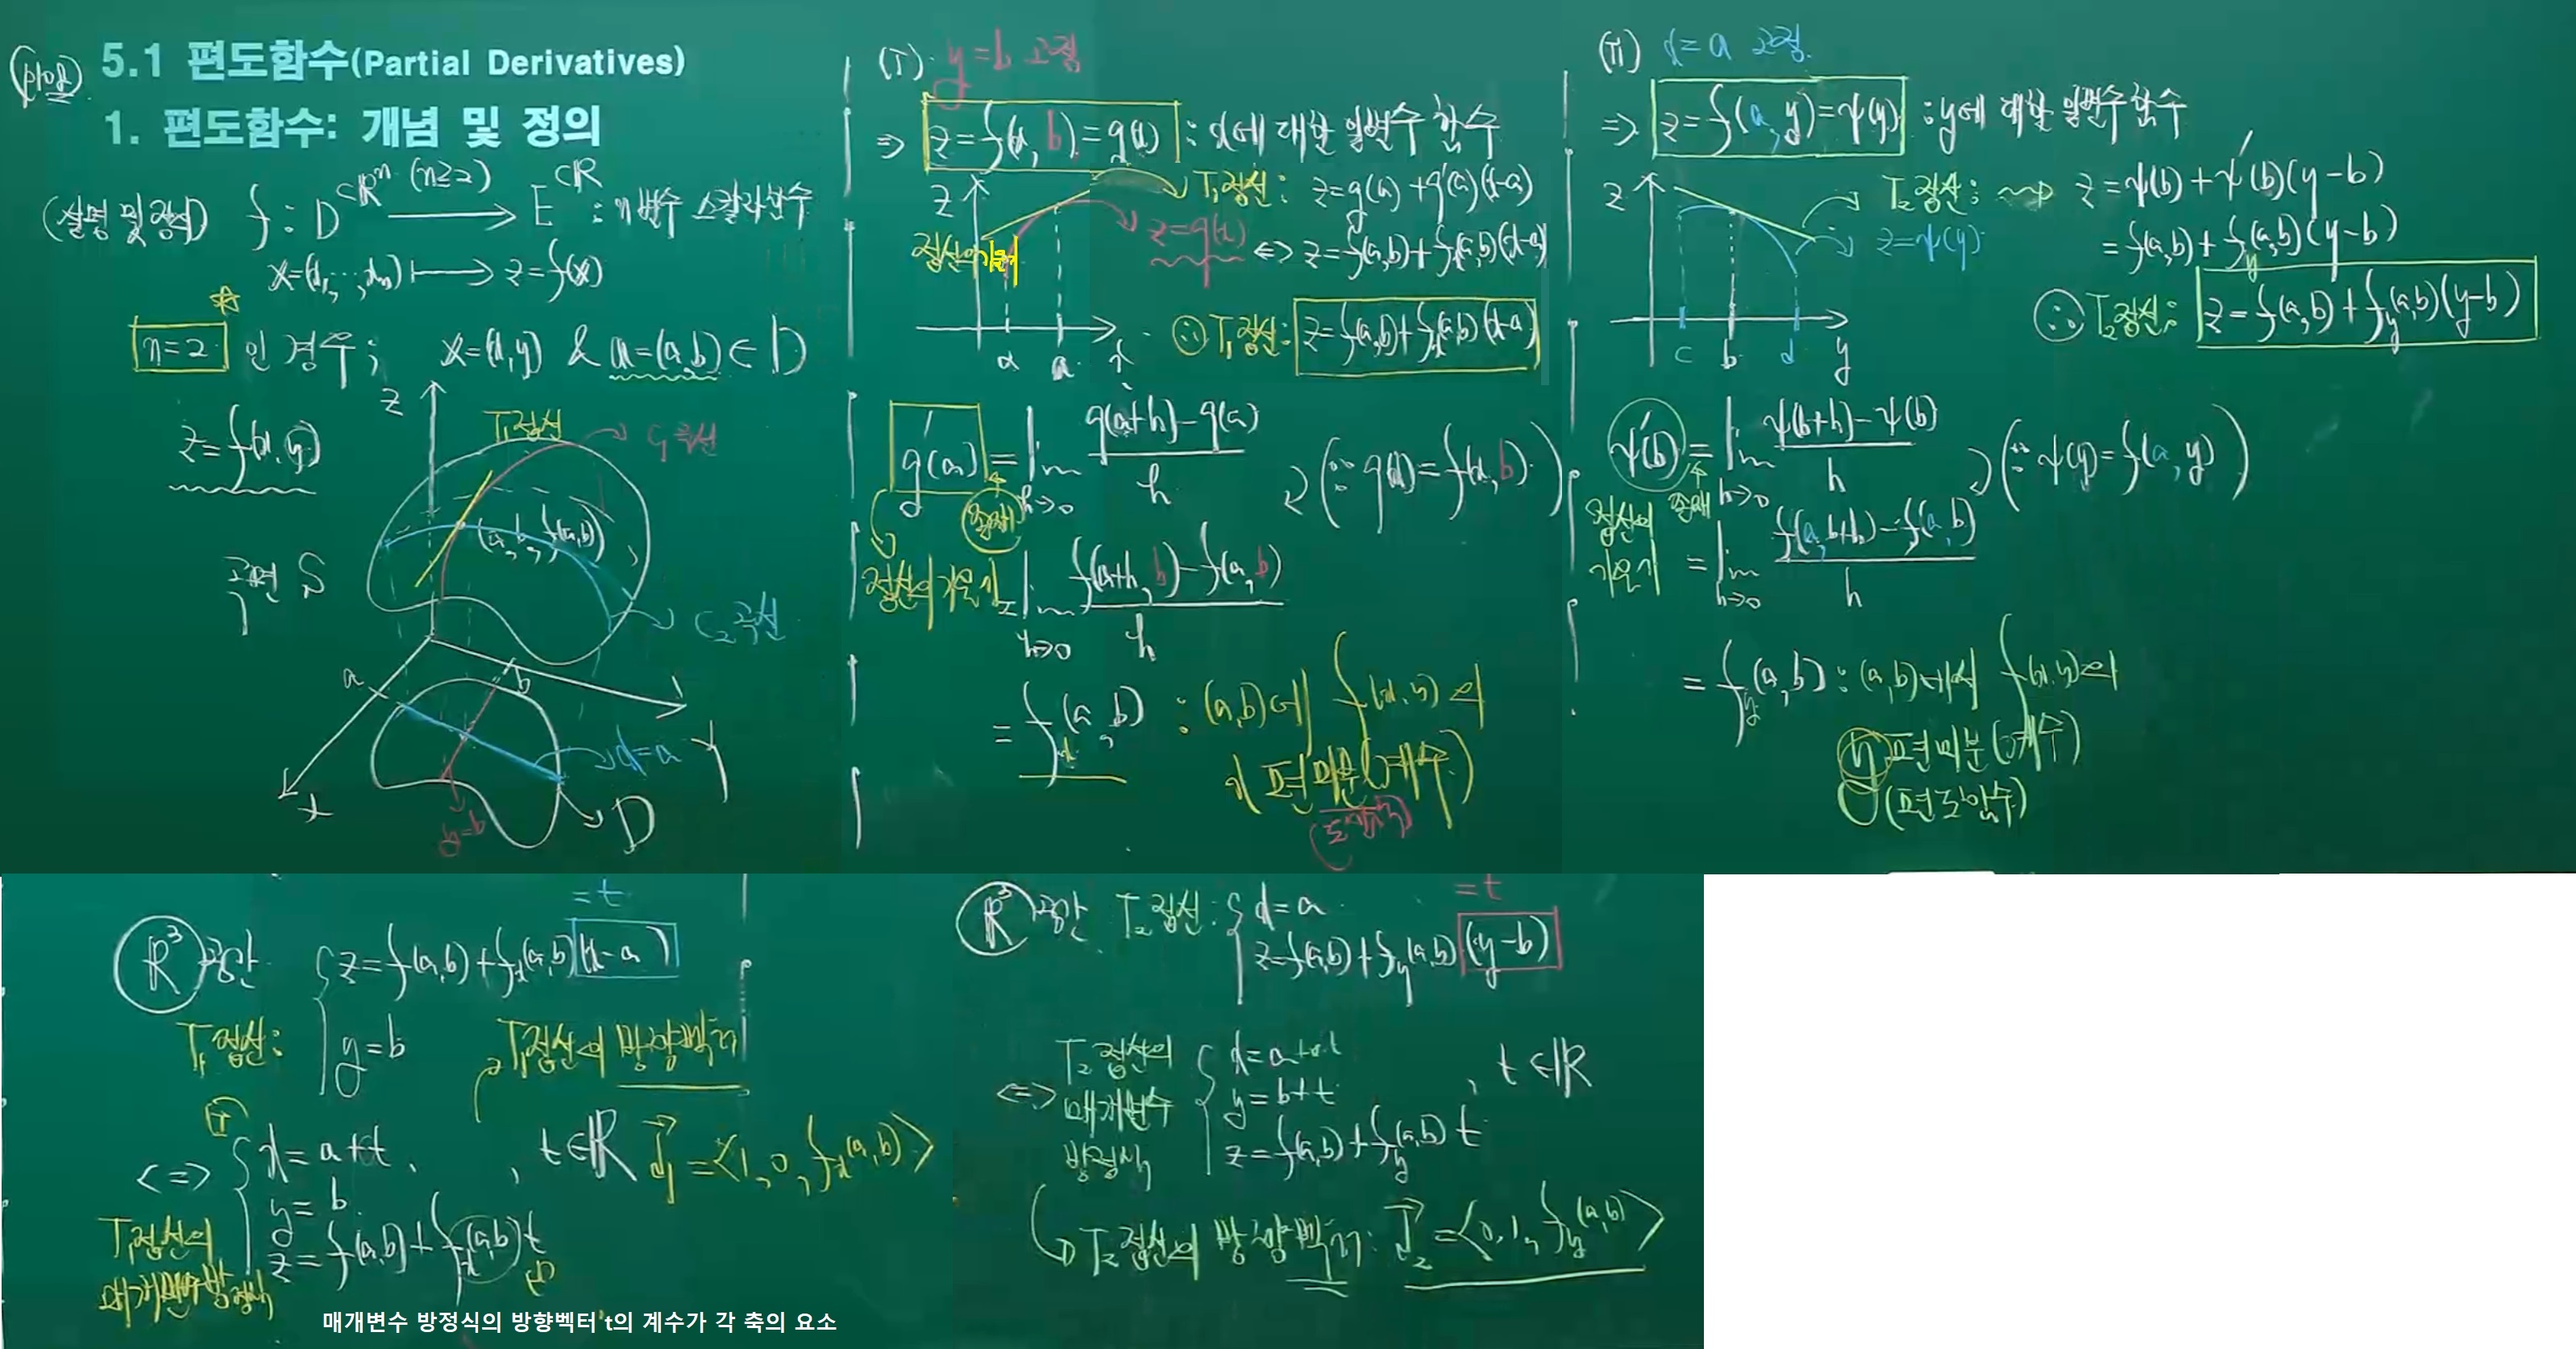 5.1 편도함수(Partial Derivatives)
1. 편도함수: 개념 및 정의
(설명 및 정의) f : D ⊂ℝⁿ (n≥2) ⟶ E ⊂ℝ : n변수 스칼라함수
x=(x₁, ⋯, xₙ) ⟼ z=f(x)
☆
n=2 인 경우; x=(x,y) & a=(a,b)∈D
z=f(x,y)
곡면 S
z
T₁접선
C₁곡선
(a, b, f(a,b))
C₂곡선
a
b
x
y
x=a
y=b
D
(ⅰ) y=b 고정
⇒ z=f(x,b)=g(x) : x에 대한 일변수 함수
T₁접선: z=g(a)+g′(a)(x-a)
z=g(x) ⇔ z=f(a,b)+fₓ(a,b)(x-a)
∴ T₁접선: z=f(a,b)+fₓ(a,b)(x-a)
z
접선의 기울기
α a x
g′(a) = lim h→0 g(a+h)-g(a) / h (∵ g(x)=f(x,b))
존재
접선의 기울기
= lim h→0 f(a+h, b)-f(a, b) / h
= fₓ(a,b) : (a,b)에서 f(x,y)의
x 편미분(계수)
(ⅱ) x=a 고정.
⇒ z=f(a,y)=ψ(y) : y에 대한 일변수 함수
T₂접선: ⇝ z=ψ(b)+ψ′(b)(y-b)
z=ψ(y)
=f(a,b)+f_y(a,b)(y-b)
∴ T₂접선: z=f(a,b)+f_y(a,b)(y-b)
z
c b d y
ψ′(b) = lim h→0 ψ(b+h)-ψ(b) / h (∵ ψ(y)=f(a,y))
존재
접선의
기울기
= lim h→0 f(a,b+h)-f(a,b) / h
= f_y(a,b) : (a,b)에서 f(x,y)의
y 편미분(계수)
(편도함수)
=t
ℝ³공간 z=f(a,b)+fₓ(a,b)(x-a)
T₁접선: y=b
T₁접선의 방향벡터
⇔ x=a+t, , t∈ℝ T⃗₁=<1, 0, fₓ(a,b)>
y=b
z=f(a,b)+fₓ(a,b)t
T₁접선의
매개변수방정식
매개변수 방정식의 방향벡터 t의 계수가 각 축의 요소
=t
ℝ³공간 T₂접선: x=a
z=f(a,b)+f_y(a,b)(y-b)
⇔ T₂접선의
매개변수
방정식
x=a+0t
y=b+t , t∈ℝ
z=f(a,b)+f_y(a,b)t
T₂접선의 방향벡터: T⃗₂=<0, 1, f_y(a,b)>